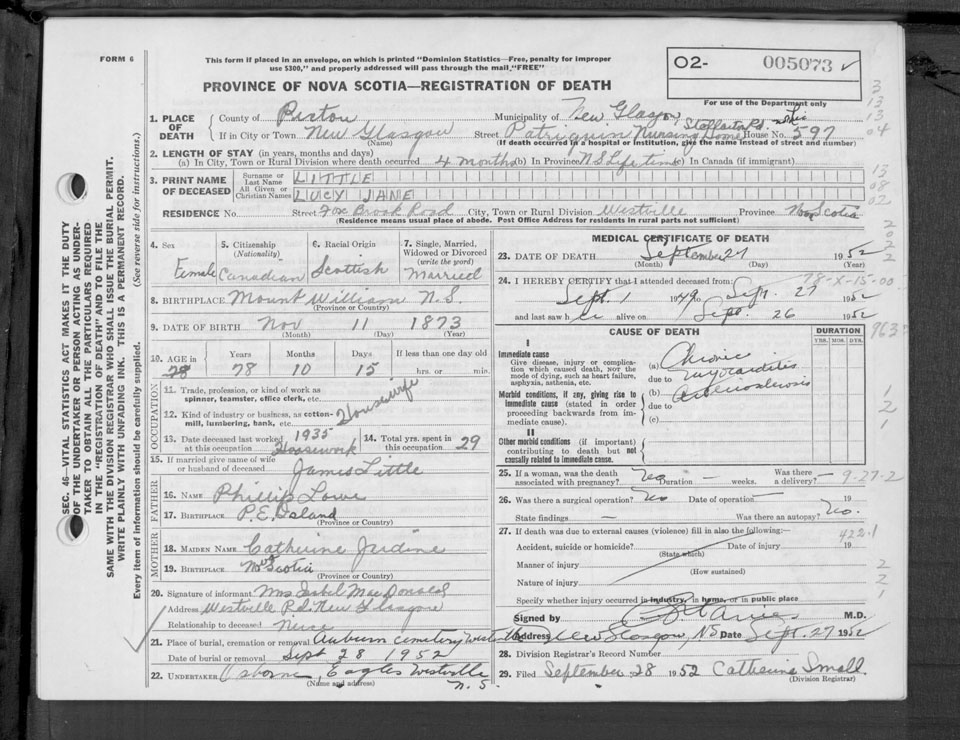 FORM 6
This form if placed in an envelope, on which is printed "Dominion Statistics—Free, penalty for improper
use $300," and properly addressed will pass through the mail "FREE"
PROVINCE OF NOVA SCOTIA—REGISTRATION OF DEATH
O2- 005073
For use of the Department only
SEC. 46—VITAL STATISTICS ACT MAKES IT THE DUTY
OF THE UNDERTAKER OR PERSON ACTING AS UNDER-
TAKER TO OBTAIN ALL THE PARTICULARS REQUIRED
IN THE REGISTRATION OF DEATH AND TO FILE THE
SAME WITH THE DIVISION REGISTRAR WHO SHALL ISSUE THE BURIAL PERMIT.
WRITE PLAINLY WITH UNFADING INK. THIS IS A PERMANENT RECORD.
Every item of information should be carefully supplied. (See reverse side for instructions.)
1. PLACE OF DEATH County of Pictou Municipality of New Glasgow Stellarton Rd.
If in City or Town New Glasgow (Name) Street Patriquin Nursing Home House No. 597
(If death occurred in hospital or institution, give the name instead of street and number)
2. LENGTH OF STAY (in years, months and days)
(a) In City, Town or Rural Division where death occurred 4 months (b) In Province N S Life time (c) In Canada (if immigrant)
3. PRINT NAME OF DECEASED Surname or Last Name LITTLE
All Given or Christian Names LUCY JANE
RESIDENCE No. Street Fox Brook Road City, Town or Rural Division Westville Province Nova Scotia
(Residence means usual place of abode. Post Office Address for residents in rural parts not sufficient)
4. Sex Female
5. Citizenship (Nationality) Canadian
6. Racial Origin Scottish
7. Single, Married, Widowed or Divorced (write the word) Married
8. BIRTHPLACE Mount William N.S.
(Province or Country)
9. DATE OF BIRTH Nov 11 1873
(Month) (Day) (Year)
10. AGE in 78 Years 78 Months 10 Days 15 If less than one day old hrs. or min.
OCCUPATION
11. Trade, profession, or kind of work as
spinner, teamster, office clerk, etc.
12. Kind of industry or business, as cotton-
mill, lumbering, bank, etc. Housewife
13. Date deceased last worked at this occupation 1935 Housework
14. Total yrs. spent in this occupation 29
15. If married give name of wife
or husband of deceased James Little
FATHER
16. NAME Phillip Lowe
17. BIRTHPLACE P.E. Island
(Province or Country)
MOTHER
18. MAIDEN NAME Catherine Jardine
19. BIRTHPLACE N. Scotia
(Province or Country)
20. Signature of informant Mrs Isabel MacDonald
Address Westville Rd. New Glasgow
Relationship to deceased Neice
21. Place of burial, cremation or removal Auburn cemetery Westville
Date of burial or removal Sept 28 1952
22. UNDERTAKER Osborne Eagles Westville N.S.
(Name and address)
MEDICAL CERTIFICATE OF DEATH
23. DATE OF DEATH September 27 1952
(Month) (Day) (Year)
78-X-15-00
24. I HEREBY CERTIFY that I attended deceased from:
Sept. 1 1949 Sept. 27 1952
and last saw her alive on Sept. 26 1952
CAUSE OF DEATH DURATION
YRS. MOS. DYS.
I
Immediate cause
Give disease, injury or complica-
tion which caused death, NOT the
mode of dying, such as heart failure,
asphyxia, asthenia, etc.
(a) Chronic Myocarditis
due to
Morbid conditions, if any, giving rise to
immediate cause (stated in order
proceeding backwards from im-
mediate cause).
(b) Arteriosclerosis
due to
(c)
II
Other morbid conditions (if important)
contributing to death but not
causally related to immediate cause.
25. If a woman, was the death associated with pregnancy? No Duration — weeks. Was there a delivery? — 9-27-2
26. Was there a surgical operation? No Date of operation — 19
State findings — Was there an autopsy? No.
27. If death was due to external causes (violence) fill in also the following:— 422.1
Accident, suicide or homicide? Date of injury 19
(State which)
Manner of injury
(How sustained)
Nature of injury
Specify whether injury occurred in industry, in home, or in public place
Signed by M.D.
Address New Glasgow, N.S Date Sept. 27 1952
28. Division Registrar's Record Number
29. Filed September 28 1952 Catherine Small
(Division Registrar)